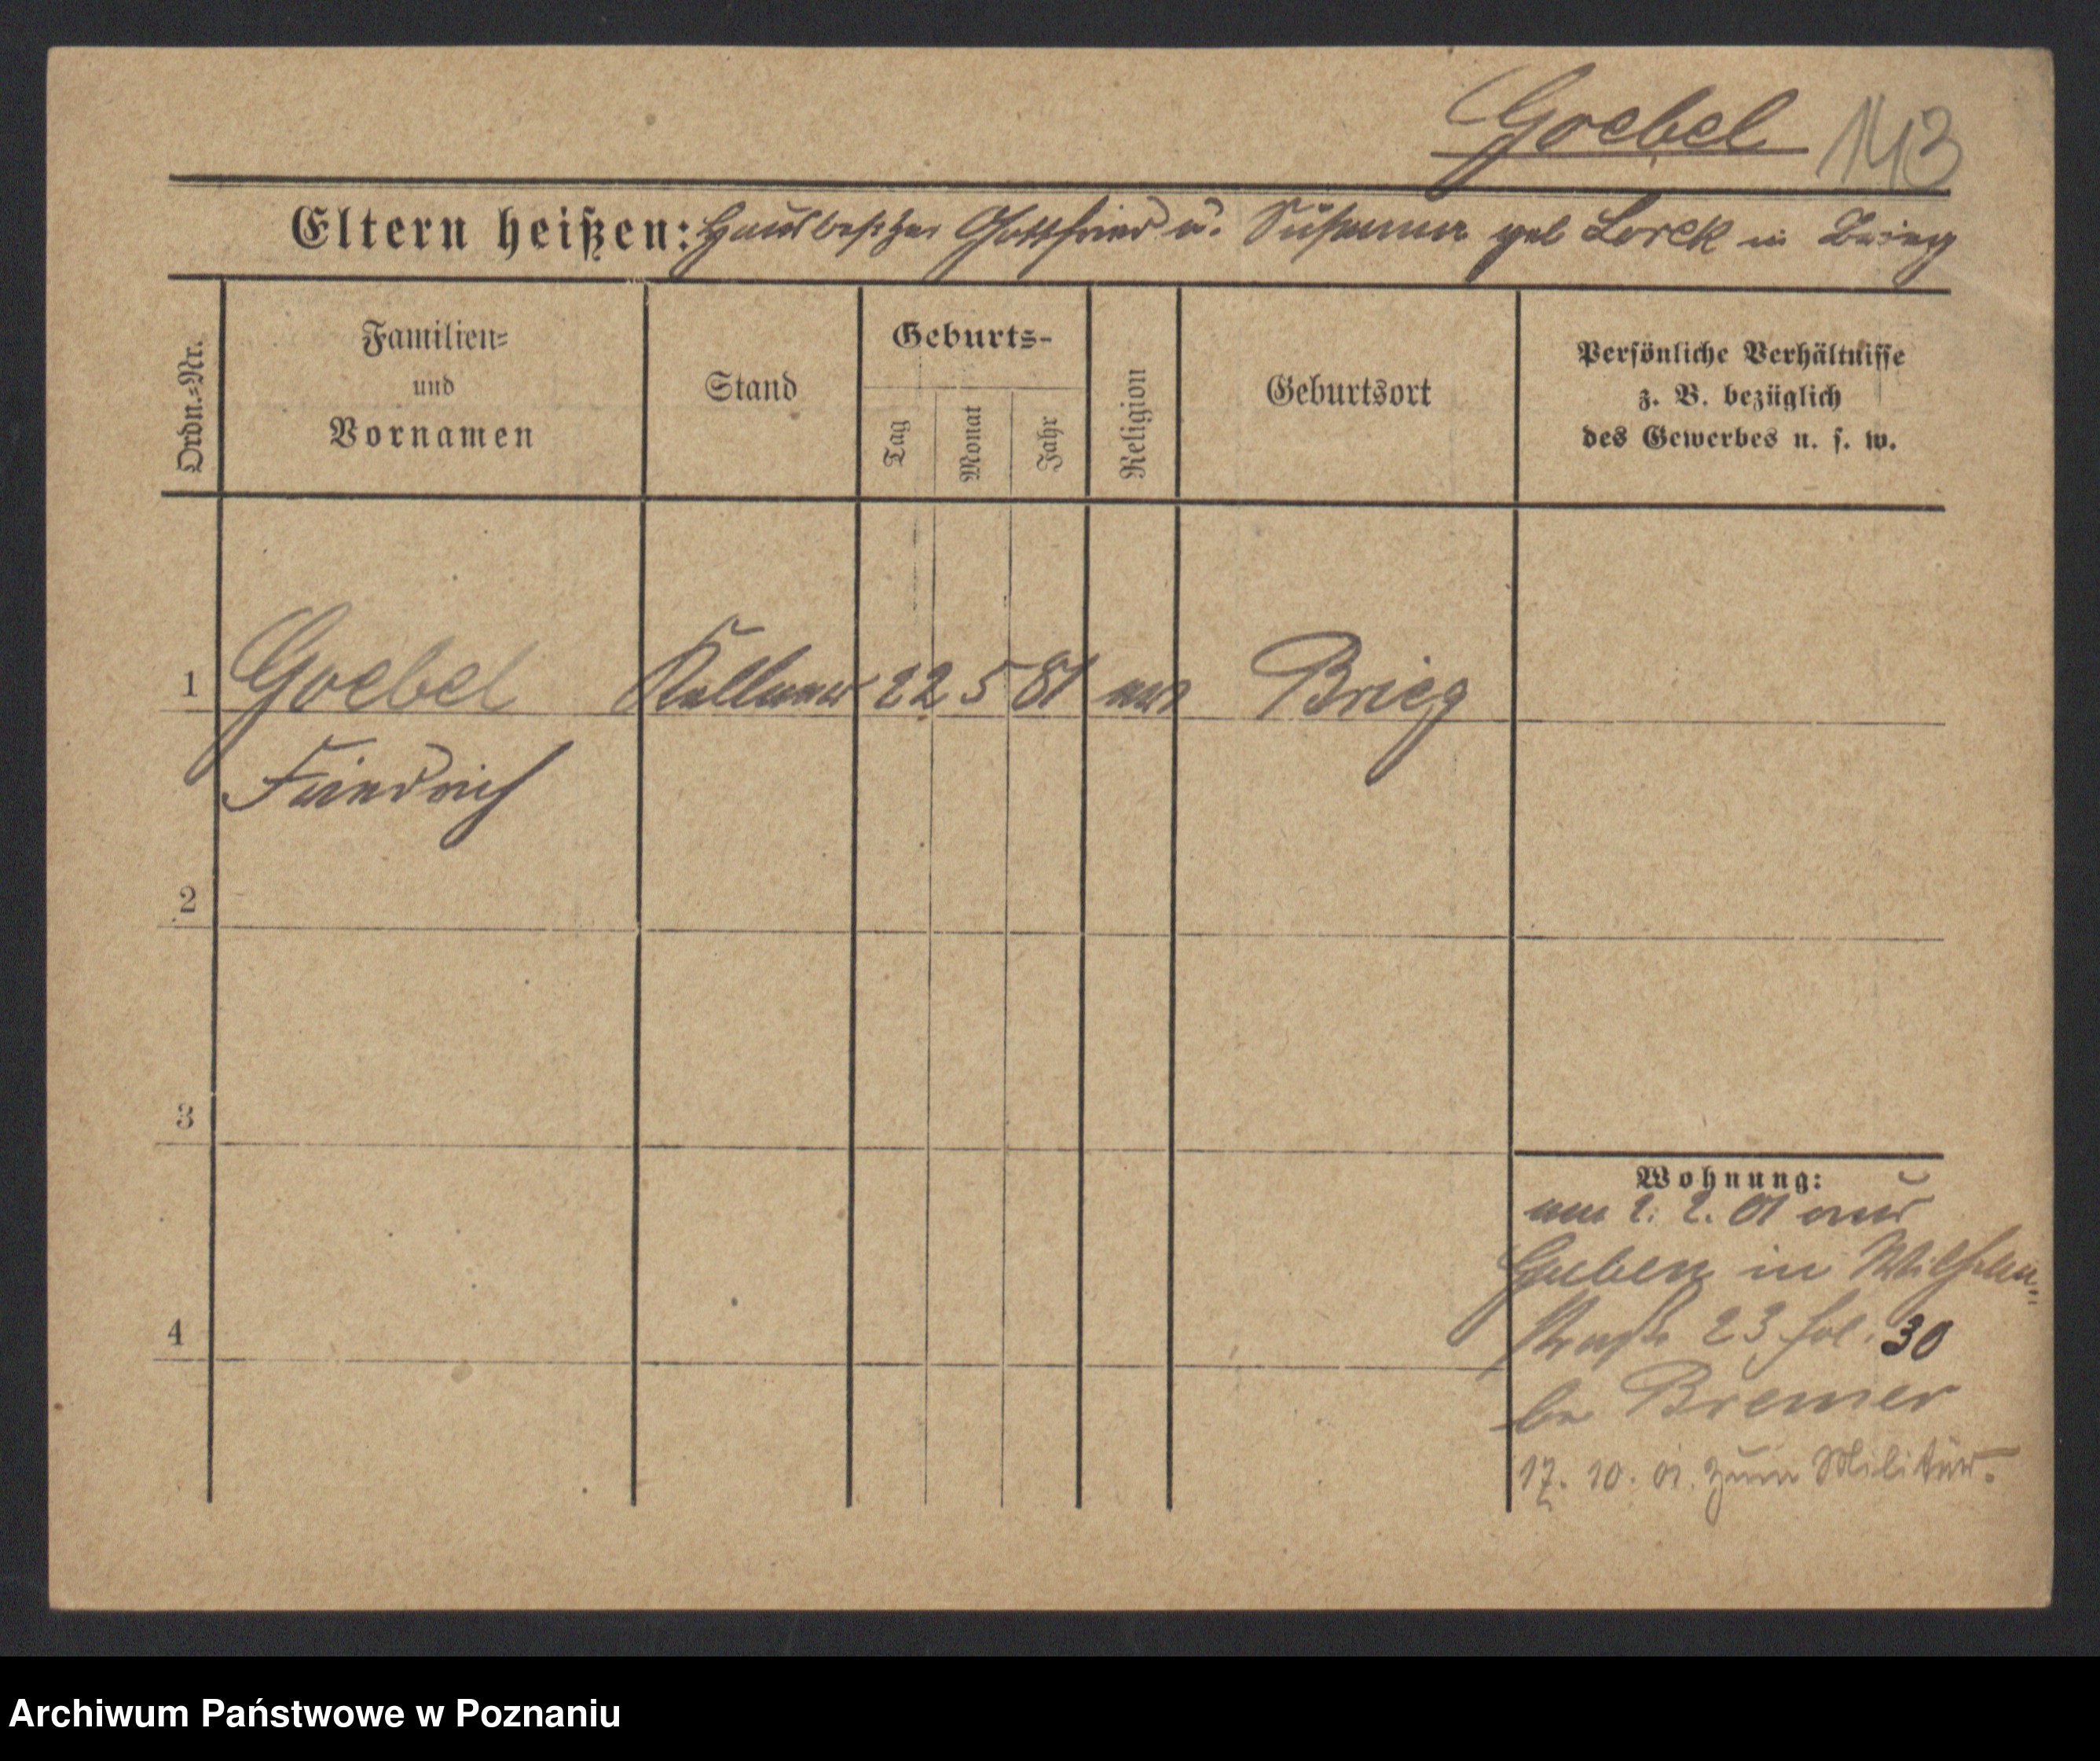 Goebel 143
Eltern heißen: Hausbesitzer Gottfried u. Susanna geb Lorek in Brieg
Ordn.-Nr.
Familien-
und
Vornamen
Stand
Geburts-
Tag
Monat
Jahr
Religion
Geburtsort
Persönliche Verhältnisse
z. B. bezüglich
des Gewerbes u. s. w.
1 Goebel Kellner 22 5 81 Brieg
Friedrich
2
3
4
Wohnung:
2. 01 aus
Guben in Wilhelm-
straße 23 fol. 30
bei Bremer
17. 10. 01. zum Militär.
Archiwum Państwowe w Poznaniu